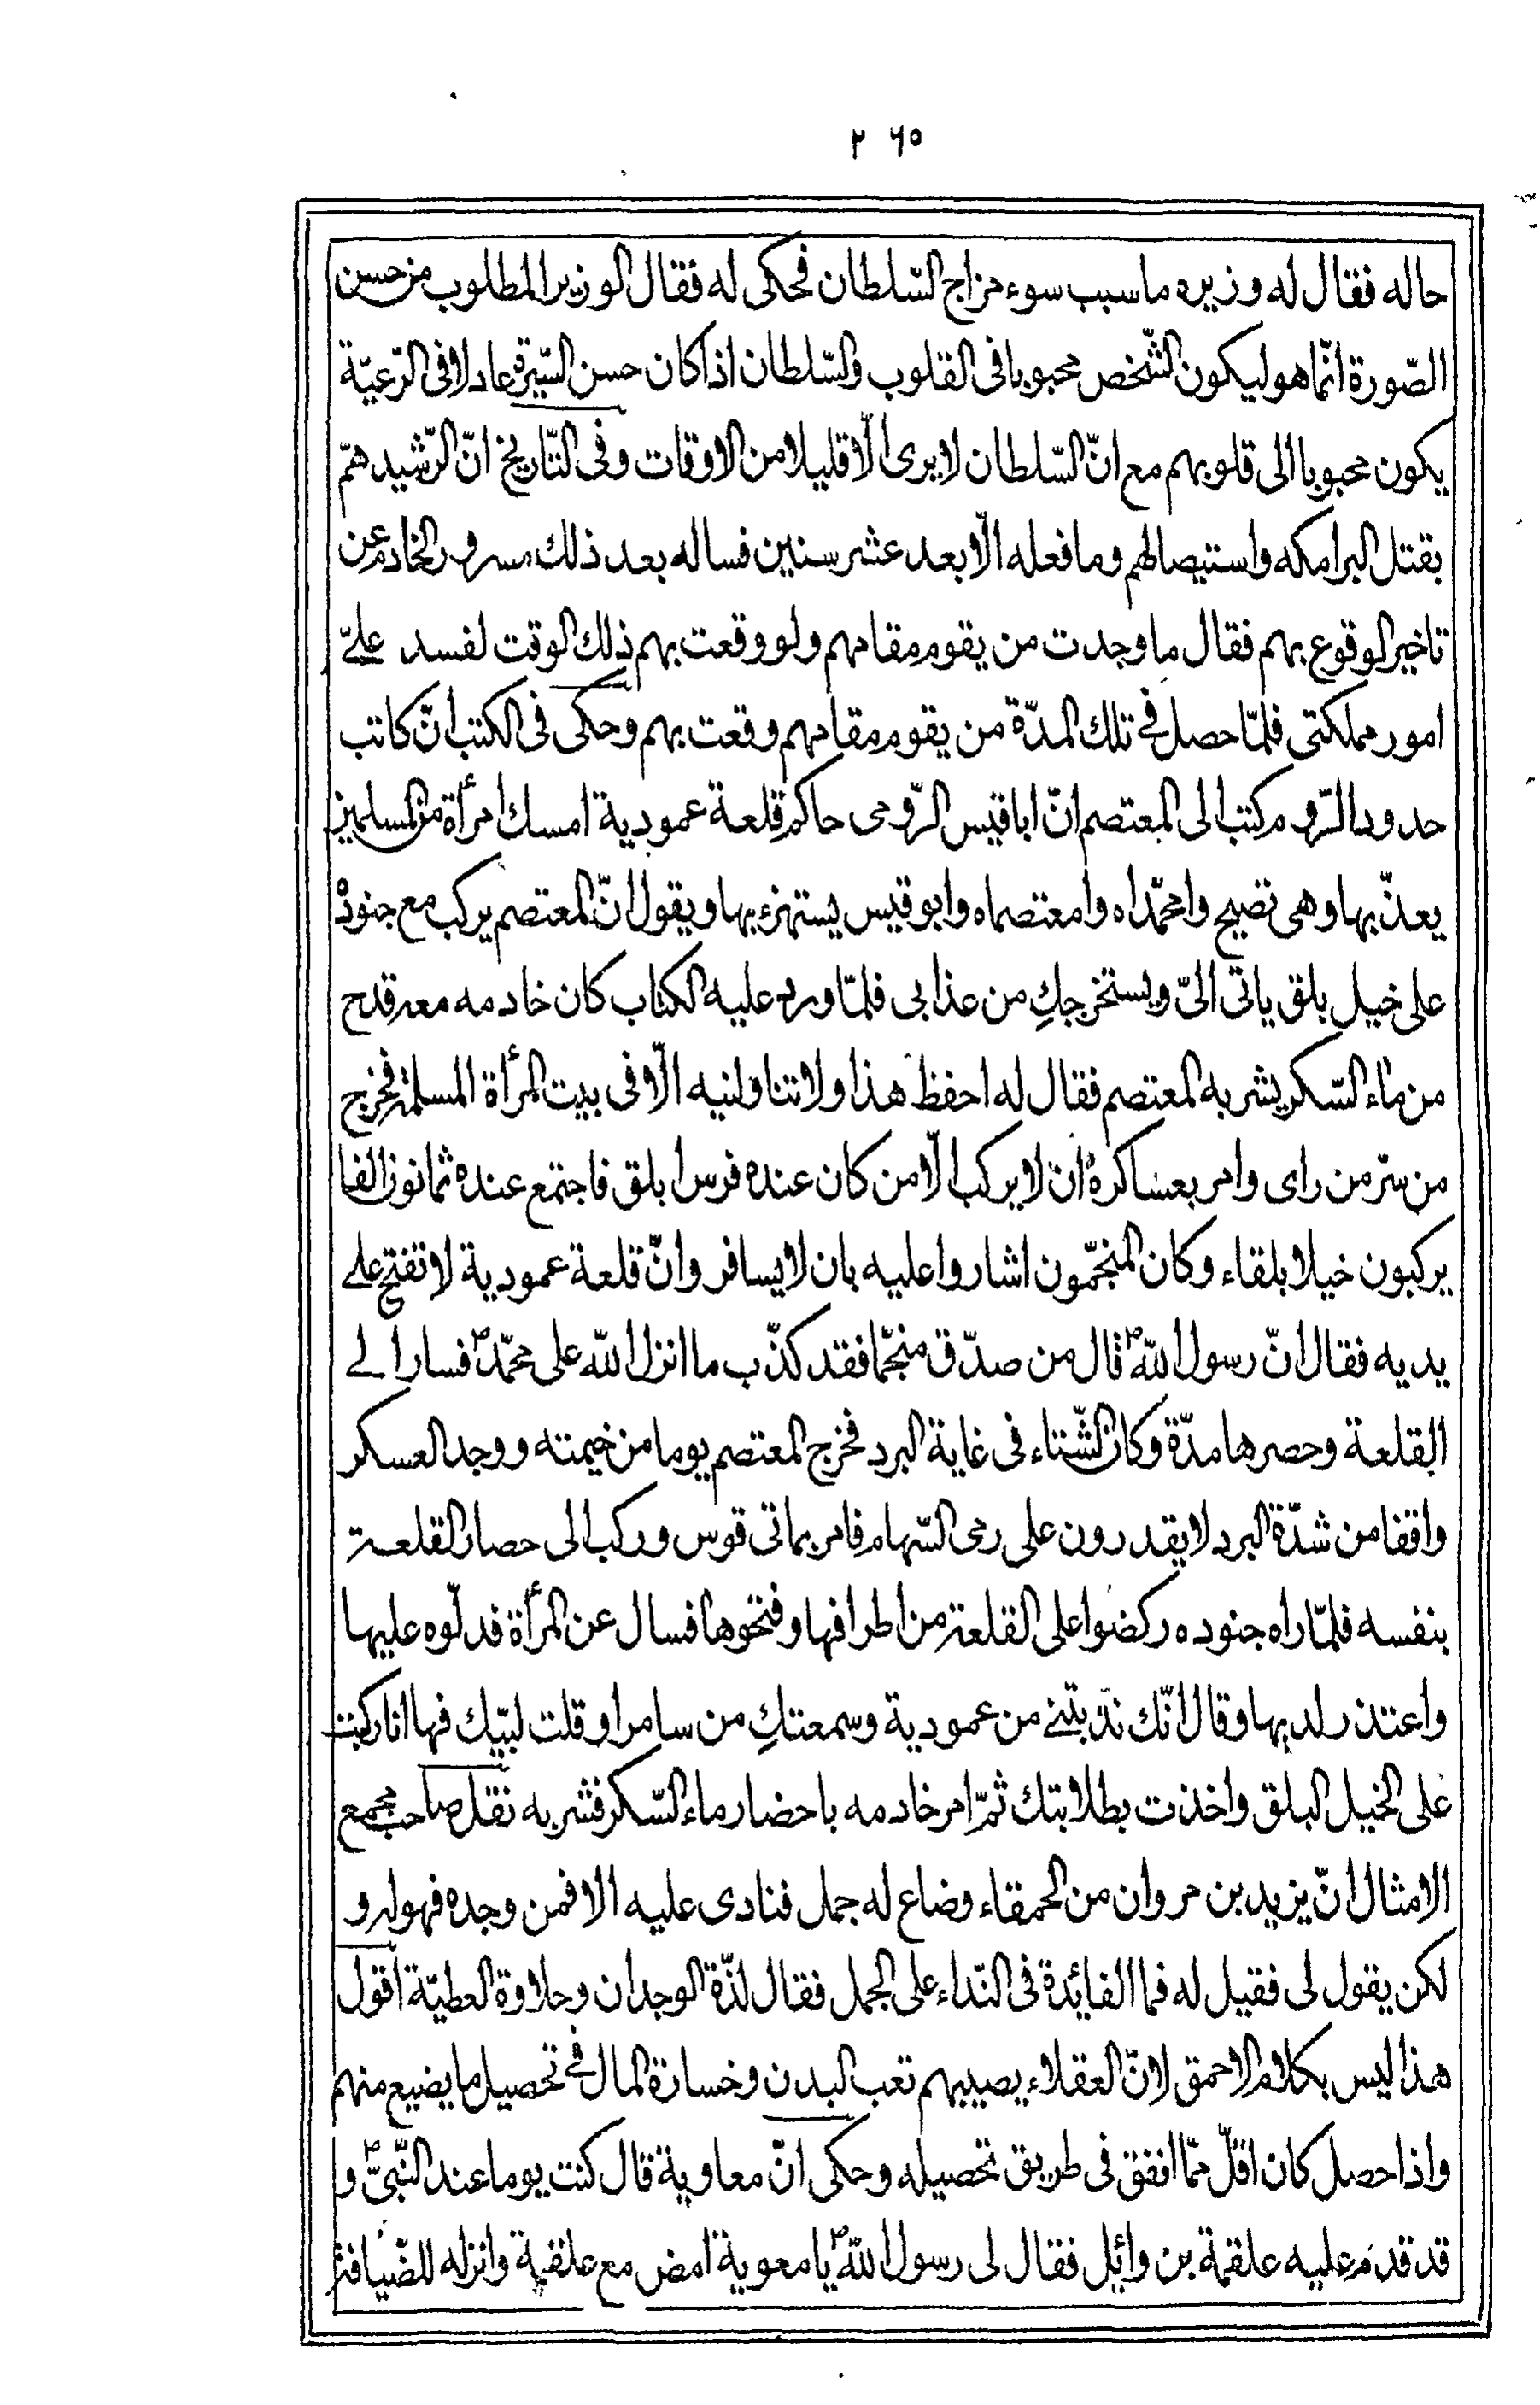 ٢٦٥
حاله فقال له وزيره ما سبب سوء مزاج السّلطان فحكى له فقال الوزير المطلوب من حسن
الصّورة انّما هو ليكون الشّخص محبوبا فى القلوب والسّلطان اذا كان حسن السّيرة عادلا فى الرّعيّة
يكون محبوبا الى قلوبهم مع انّ السّلطان لا يرى الّا قليلا من الاوقات وفى التّاريخ انّ الرّشيد همّ
بقتل البرامكه واستيصالهم وما فعله الّا بعد عشر سنين فساله بعد ذلك مسرور الخادم عن
تاخير الوقوع بهم فقال ما وجدت من يقوم مقامهم ولو وقعت بهم ذلك الوقت لفسد علىّ
امور مملكتى فلمّا حصل فى تلك المدّة من يقوم مقامهم وقعت بهم وحكى فى الكتب انّ كاتب
حدود الرّوم كتب الى المعتصم انّ اباقيس الرّومى حاكم قلعة عمودية امسك امرأة من المسلمين
يعذّبها وهى تصيح وامحمّداه وامعتصماه وابوقيس يستهزء بها ويقول انّ المعتصم يركب مع جنوده
على خيل بلق ياتى الىّ ويستخرجكِ من عذابى فلمّا ورد عليه الكتاب كان خادمه معه قدح
من ماء السّكر يشربه المعتصم فقال له احفظ هذا ولا تناولنيه الّا فى بيت المرأة المسلمة فخرج
من سرّ من راى وامر بعساكره ان لا يركب الّا من كان عنده فرس ابلق فاجتمع عنده ثمانون الفا
يركبون خيلا بلقاء وكان المنجّمون اشاروا عليه بان لا يسافر وانّ قلعة عمودية لا تفتح على
يديه فقال انّ رسول اللّه ص قال من صدّق منجّما فقد كذّب ما انزل اللّه على محمّد ص فسار الى
القلعة وحصرها مدّة وكان الشّتاء فى غاية البرد فخرج المعتصم يوما من خيمته ووجد العسكر
واقفا من شدّة البرد لا يقدرون على رمى السّهام فامر بماتى قوس وركب الى حصار القلعة
بنفسه فلمّا راه جنوده ركضوا على القلعة من اطرافها وفتحوها فسال عن المرأة فدلّوه عليها
واعتذر لديها وقال انّك ندبتنى من عمودية وسمعتكِ من سامرا وقلت لبيّك فها انا ركبت
على الخيل البلق واخذت بطلابتك ثمّ امر خادمه باحضار ماء السّكر فشربه نقل صاحب مجمع
الامثال انّ يزيد بن مروان من الحمقاء وضاع له جمل فنادى عليه الا فمن وجده فهو له و
لكن يقول لى فقيل له فما الفايدة فى النّداء على الجمل فقال لذّة الوجدان وحلاوة العطيّة اقول
هذا ليس بكلام الاحمق لانّ العقلاء يصيبهم تعب البدن وخسارة المال فى تحصيل ما يضيع منهم
واذا حصل كان اقلّ ممّا انفق فى طريق تحصيله وحكى انّ معاوية قال كنت يوما عند النّبىّ ص و
قد قدم عليه علقمة بن وايل فقال لى رسول اللّه ص يا معوية امض مع علقمة وانزله للضّيافة